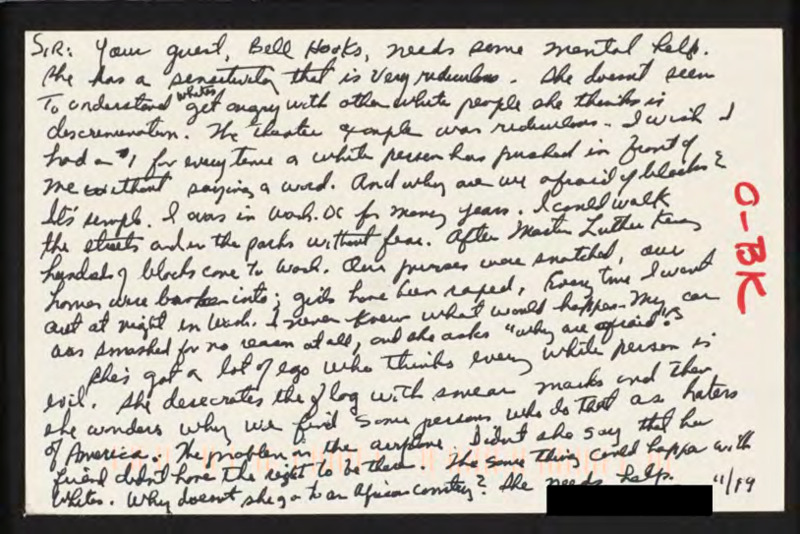 SIR: Your guest, Bell Hooks, needs some mental help.
She has a sensitivity that is very ridiculous. She doesnt seem
To understand whites get angry with other white people she thinks is
descremenation. The theater example was rediculous. I wish I
had a $1 for every time a white person has pushed in front of
me without saying a word. And why are we afraid of blacks?
Its simple. I was in Wash. DC for many years. I could walk
the streets and in the parks without fear. After Martin Luther King
hundreds of blacks came To Wash. Our purses were snatched, our
homes were broken into; girls have been raped, Every time I went
out at night in Wash. I never knew what would happen. My car
was smashed for no reason at all, and she asks "why are afraid"?
She's got a lot of ego who thinks every white person is
evil. She desecrates the flag with smear marks and then
she wonders why we find some persons who do that as haters
of America. The problem on the airplane. Didn't she say that her
friend didn't have the right to be there. The same thing could happen with
Whites. Why doesnt she go to an African country? She needs help.
11/19
O-BK